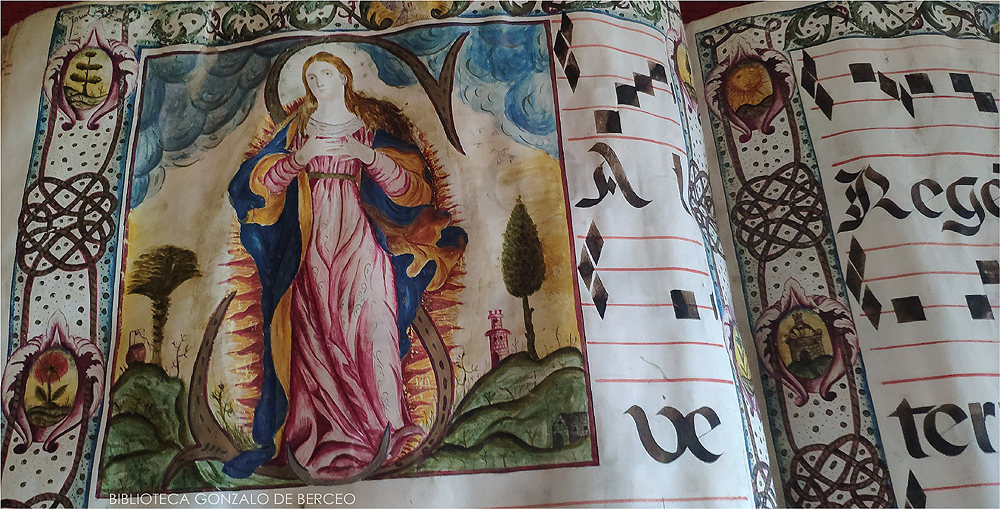 A
ve
ter
BIBLIOTECA GONZALO DE BERCEO